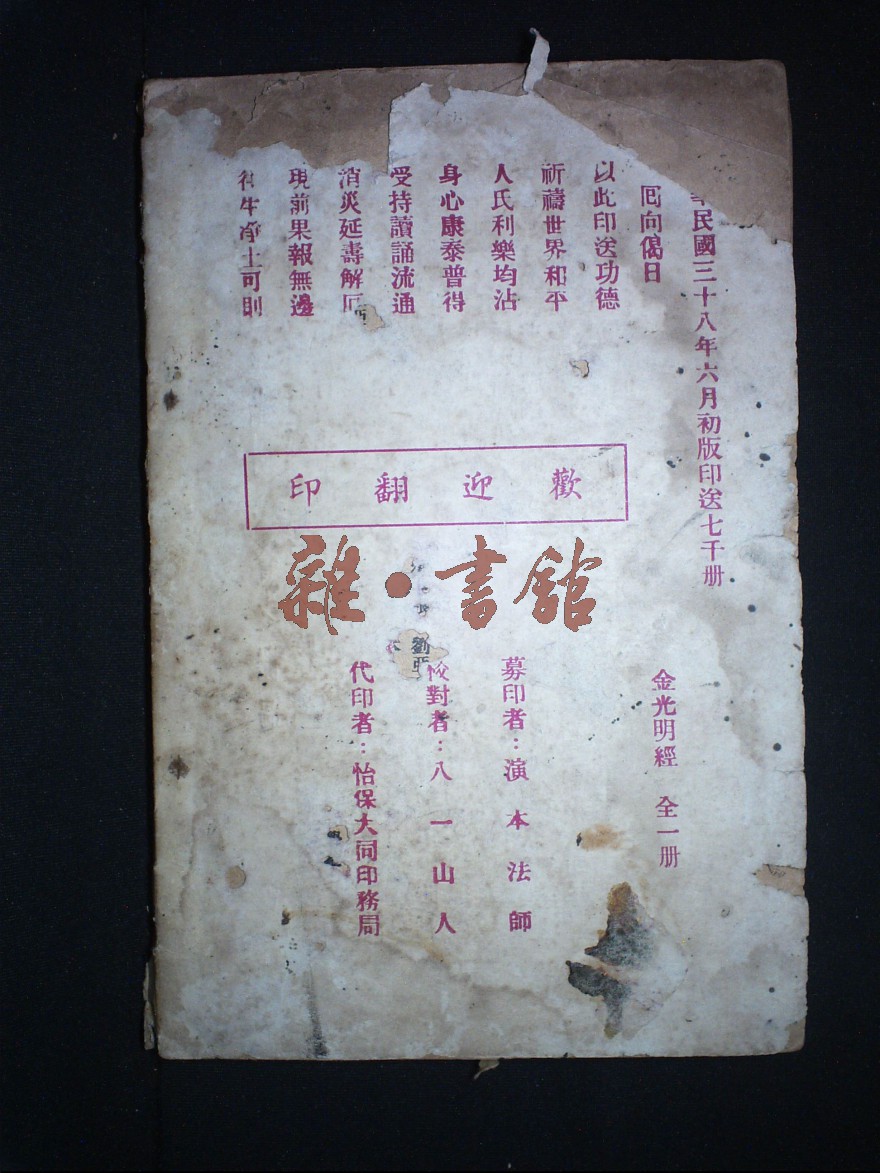 華民國三十八年六月初版印送七千册
回向偈曰
以此印送功德
祈禱世界和平
人民利樂均沾
身心康泰普得
受持讀誦流通
消災延壽解厄
現前果報無邊
往生淨土可則
歡迎翻印
雜·書館
金光明經 全一册
募印者：演本法師
校對者：八一山人
劉亞
代印者：怡保大同印務局